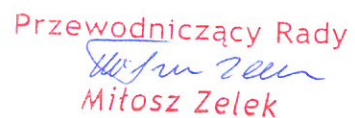 Przewodniczący Rady
Miłosz Zelek